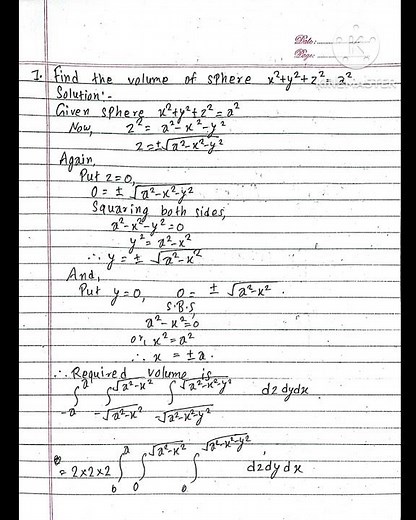 Date:
Page:
1. Find the volume of sphere x²+y²+z²=a².
Solution:-
Given sphere x²+y²+z²=a²
Now, z²= a²-x²-y²
z=±√a²-x²-y²
Again,
Put z=0,
0= ± √a²-x²-y²
Squaring both sides,
a²-x²-y²=0
y²= a²-x²
∴ y= ± √a²-x²
And,
Put y=0, 0= ± √a²-x² .
S.B.S,
a²-x²=0
or, x²=a²
∴ x = ±a.
∴ Required volume is
∫_{-a}^{a} ∫_{-√a²-x²}^{√a²-x²} ∫_{-√a²-x²-y²}^{√a²-x²-y²} dz dy dx
= 2×2×2 ∫_{0}^{a} ∫_{0}^{√a²-x²} ∫_{0}^{√a²-x²-y²} dz dy dx